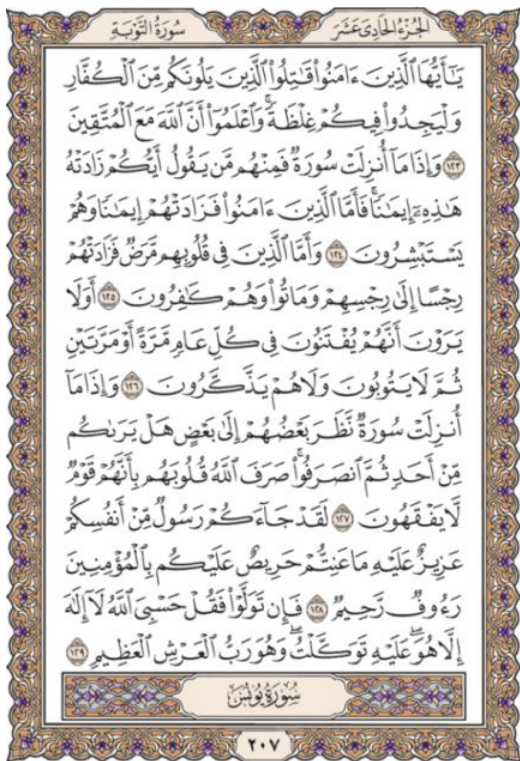 الجزء الحادي عشر سورة التوبة
يَـٰٓأَيُّهَا ٱلَّذِينَ ءَامَنُوا۟ قَـٰتِلُوا۟ ٱلَّذِينَ يَلُونَكُم مِّنَ ٱلْكُفَّارِ
وَلْيَجِدُوا۟ فِيكُمْ غِلْظَةً ۚ وَٱعْلَمُوٓا۟ أَنَّ ٱللَّهَ مَعَ ٱلْمُتَّقِينَ
١٢٣ وَإِذَا مَآ أُنزِلَتْ سُورَةٌ فَمِنْهُم مَّن يَقُولُ أَيُّكُمْ زَادَتْهُ
هَـٰذِهِۦٓ إِيمَـٰنًا ۚ فَأَمَّا ٱلَّذِينَ ءَامَنُوا۟ فَزَادَتْهُمْ إِيمَـٰنًا وَهُمْ
يَسْتَبْشِرُونَ ١٢٤ وَأَمَّا ٱلَّذِينَ فِى قُلُوبِهِم مَّرَضٌ فَزَادَتْهُمْ
رِجْسًا إِلَىٰ رِجْسِهِمْ وَمَاتُوا۟ وَهُمْ كَـٰفِرُونَ ١٢٥ أَوَلَا
يَرَوْنَ أَنَّهُمْ يُفْتَنُونَ فِى كُلِّ عَامٍ مَّرَّةً أَوْ مَرَّتَيْنِ
ثُمَّ لَا يَتُوبُونَ وَلَا هُمْ يَذَّكَّرُونَ ١٢٦ وَإِذَا مَآ
أُنزِلَتْ سُورَةٌ نَّظَرَ بَعْضُهُمْ إِلَىٰ بَعْضٍ هَلْ يَرَىٰكُم
مِّنْ أَحَدٍ ثُمَّ ٱنصَرَفُوا۟ ۚ صَرَفَ ٱللَّهُ قُلُوبَهُم بِأَنَّهُمْ قَوْمٌ
لَّا يَفْقَهُونَ ١٢٧ لَقَدْ جَآءَكُمْ رَسُولٌ مِّنْ أَنفُسِكُمْ
عَزِيزٌ عَلَيْهِ مَا عَنِتُّمْ حَرِيصٌ عَلَيْكُم بِٱلْمُؤْمِنِينَ
رَءُوفٌ رَّحِيمٌ ١٢٨ فَإِن تَوَلَّوْا۟ فَقُلْ حَسْبِىَ ٱللَّهُ لَآ إِلَـٰهَ
إِلَّا هُوَ ۖ عَلَيْهِ تَوَكَّلْتُ ۖ وَهُوَ رَبُّ ٱلْعَرْشِ ٱلْعَظِيمِ ١٢٩
سُورَةُ يُونُسَ
٢٠٧